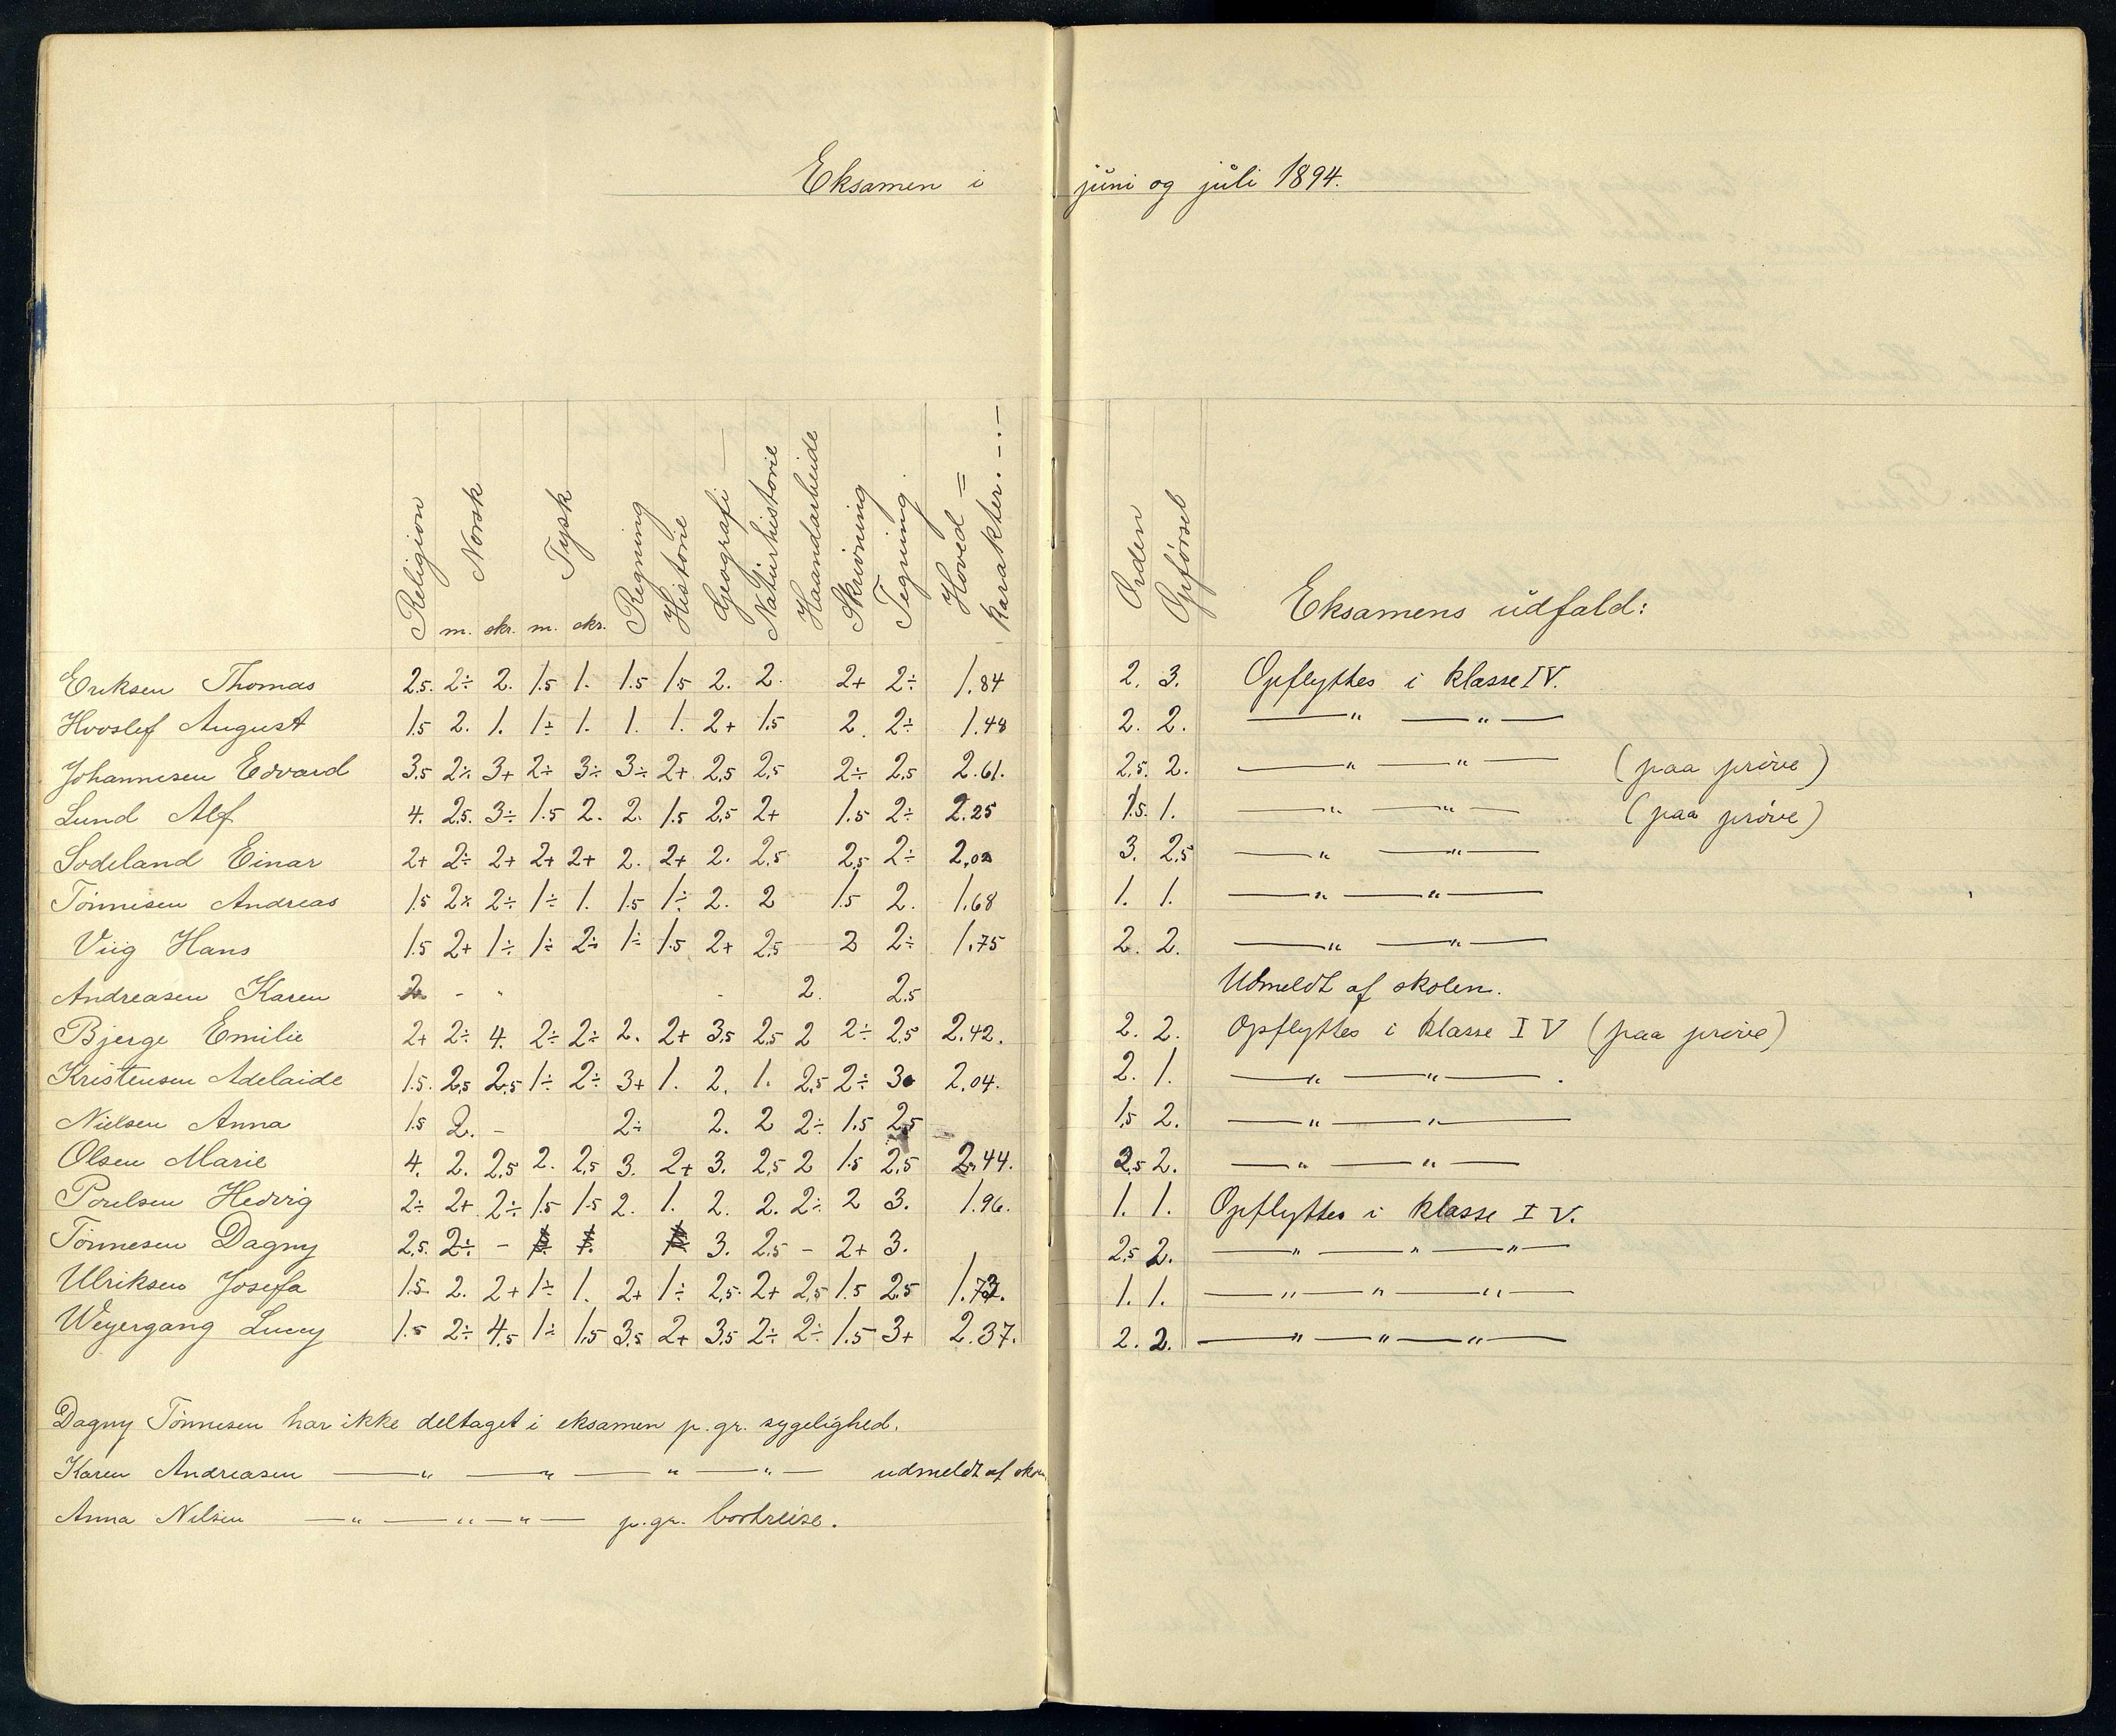 Eksamen i juni og juli 1894.
Religion Norsk Tysk Regning Historie Geografi Naturhistorie Haandarbeide Skrivning Tegning Hoved= karakter. Orden Opførsel Eksamens udfald:
m. skr. m. skr.
Eriksen Thomas 2.5. 2÷ 2. 1.5 1. 1.5 1.5 2. 2. 2+ 2÷ 1.84 2. 3. Opflyttes i klasse IV.
Hovslef August 1.5 2. 1. 1÷ 1. 1. 1. 2+ 1.5 2. 2÷ 1.48 2. 2. —"— —"—
Johannesen Edvard 3.5 2÷ 3+ 2÷ 3÷ 3÷ 2+ 2.5 2.5 2÷ 2.5 2.61. 2.5. 2. —"— —"— (paa prøve)
Lund Alf 4. 2.5. 3÷ 1.5 2. 2. 1.5 2.5 2+ 1.5 2÷ 2.25 1.5. 1. —"— —"— (paa prøve)
Sodeland Einar 2+ 2÷ 2+ 2+ 2+ 2. 2+ 2. 2.5 2.5 2÷ 3. 2.5 —"— —"—
Tönnesen Andreas 1.5 2÷ 1÷ 1. 1.5 1÷ 2. 2 1.5 2. 1.68 1. 1. —"— —"—
Viig Hans 1.5 2+ 1÷ 1÷ 2÷ 1÷ 1.5 2+ 2.5 2 2÷ 1.75 2. 2. —"— —"—
Andreasen Karen 2. - - - 2. 2.5 Udmeldt af skolen.
Bjerge Emilie 2+ 2÷ 4. 2÷ 2÷ 2. 2+ 3.5 2.5 2 2÷ 2.5 2.42. 2. 2. Opflyttes i klasse IV (paa prøve)
Kristensen Adelaide 1.5. 2.5 2.5 1÷ 2÷ 3+ 1. 2. 1. 2.5 2÷ 3. 2.04. 2. 1. —"— —"—.
Nielsen Anna 1.5 2. - 2÷ 2. 2 2÷ 1.5 2.5 1.5 2. —"— —"—
Olsen Marie 4. 2. 2.5 2. 2.5 3. 2+ 3. 2.5 2 1.5 2.5 2.44. 2.5 2. —"— —"—
Poulsen Hedvig 2÷ 2+ 2÷ 1.5 1.5 2. 1. 2. 2. 2÷ 2 3. 1.96. 1. 1. Opflyttes i klasse IV.
Tönnesen Dagny 2.5. 2÷ - 3. 2.5 - 2+ 3. 2.5 2. —"— —"— —"—
Ulriksen Josefa 1.5. 2. 2+ 1÷ 1. 2+ 1÷ 2.5. 2+ 2.5 1.5 2.5 1.73. 1. 1. —"— —"— —"—
Weyergang Lucy 1.5 2÷ 4.5 1÷ 1.5 3.5 2+ 3.5 2÷ 2÷ 1.5 3+ 2.37. 2. 2. —"— —"— —"—
Dagny Tönnesen har ikke deltaget i eksamen p. gr. sygelighed.
Karen Andreasen —"— —"— —"— —"— udmeldt af skolen
Anna Nilsen —"— —"— —"— p. gr. bortreise.